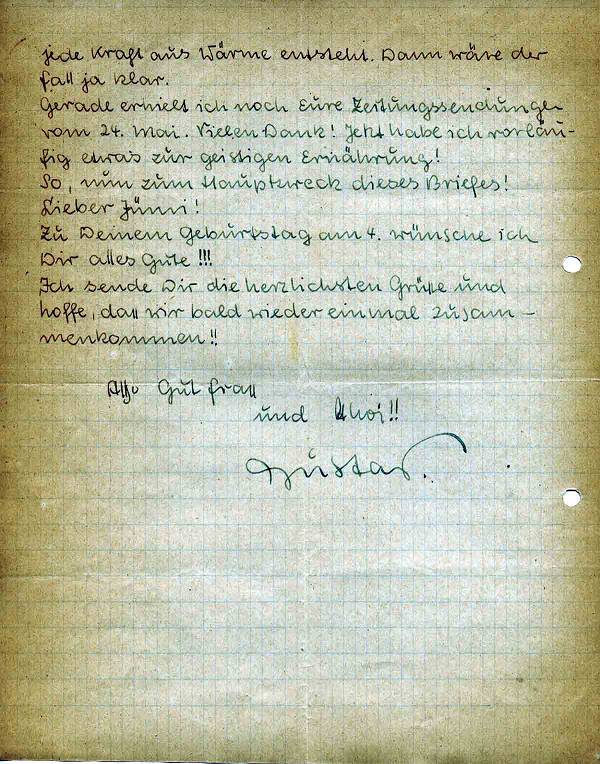 jede Kraft aus Wärme entsteht. Dann wäre der
Fall ja klar.
Gerade erhielt ich noch Eure Zeitungssendungen
vom 24. Mai. Vielen Dank! Jetzt habe ich vorläu-
fig etwas zur geistigen Ernährung!
So, nun zum Hauptzweck dieses Briefes!
Lieber Jünni!
Zu Deinem Geburtstag am 4. wünsche ich
Dir alles Gute !!!
Ich sende Dir die herzlichsten Grüße und
hoffe, daß wir bald wieder einmal zusam-
menkommen!!
Also Gut Fraß
und Ahoi!!
Gustav.